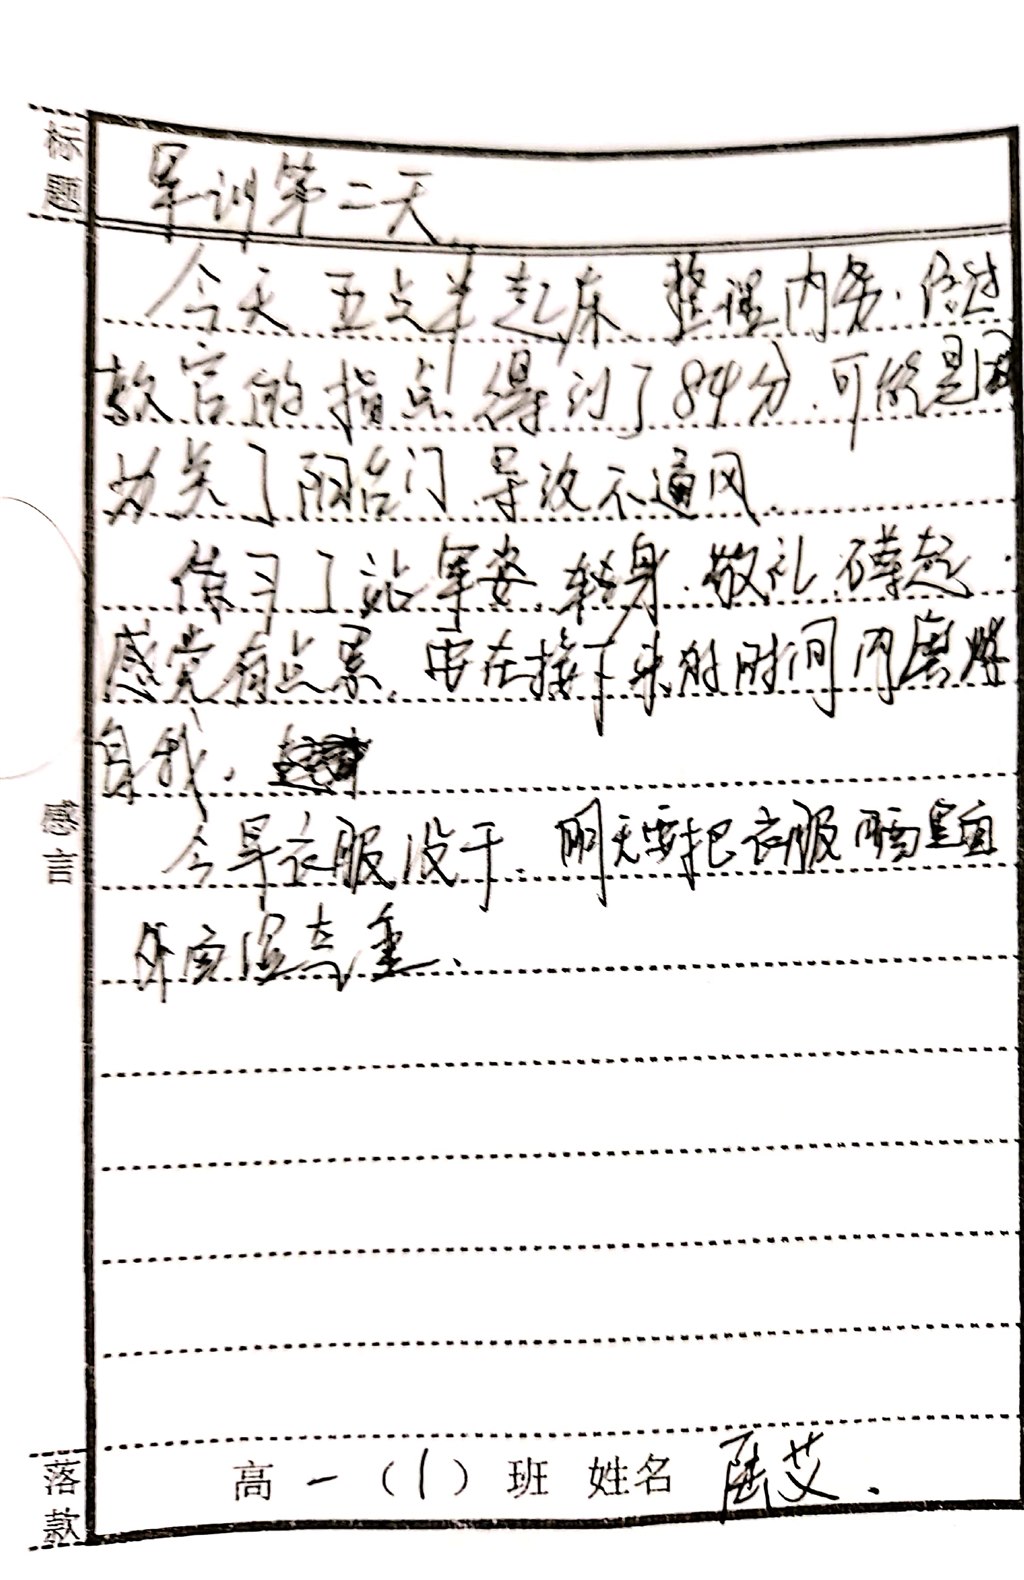 标题
军训第二天
今天五点半起床 整理内务.经过
教官的指点 得到了84分.可能是因
为关了阳台门.导致不通风.
练习了站军姿.转身.敬礼.蹲起.
感觉有点累.要在接下来的时间内磨炼
自我.
今早衣服没干.明天要把衣服晒里面
外面湿气重.
感言
落款
高一（1）班 姓名 陆艾.